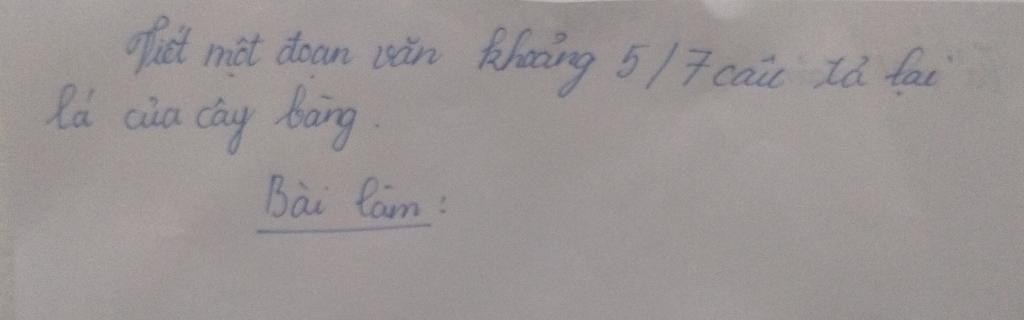 Viết một đoạn văn khoảng 5/7 câu tả lại
lá của cây bàng.
Bài làm: